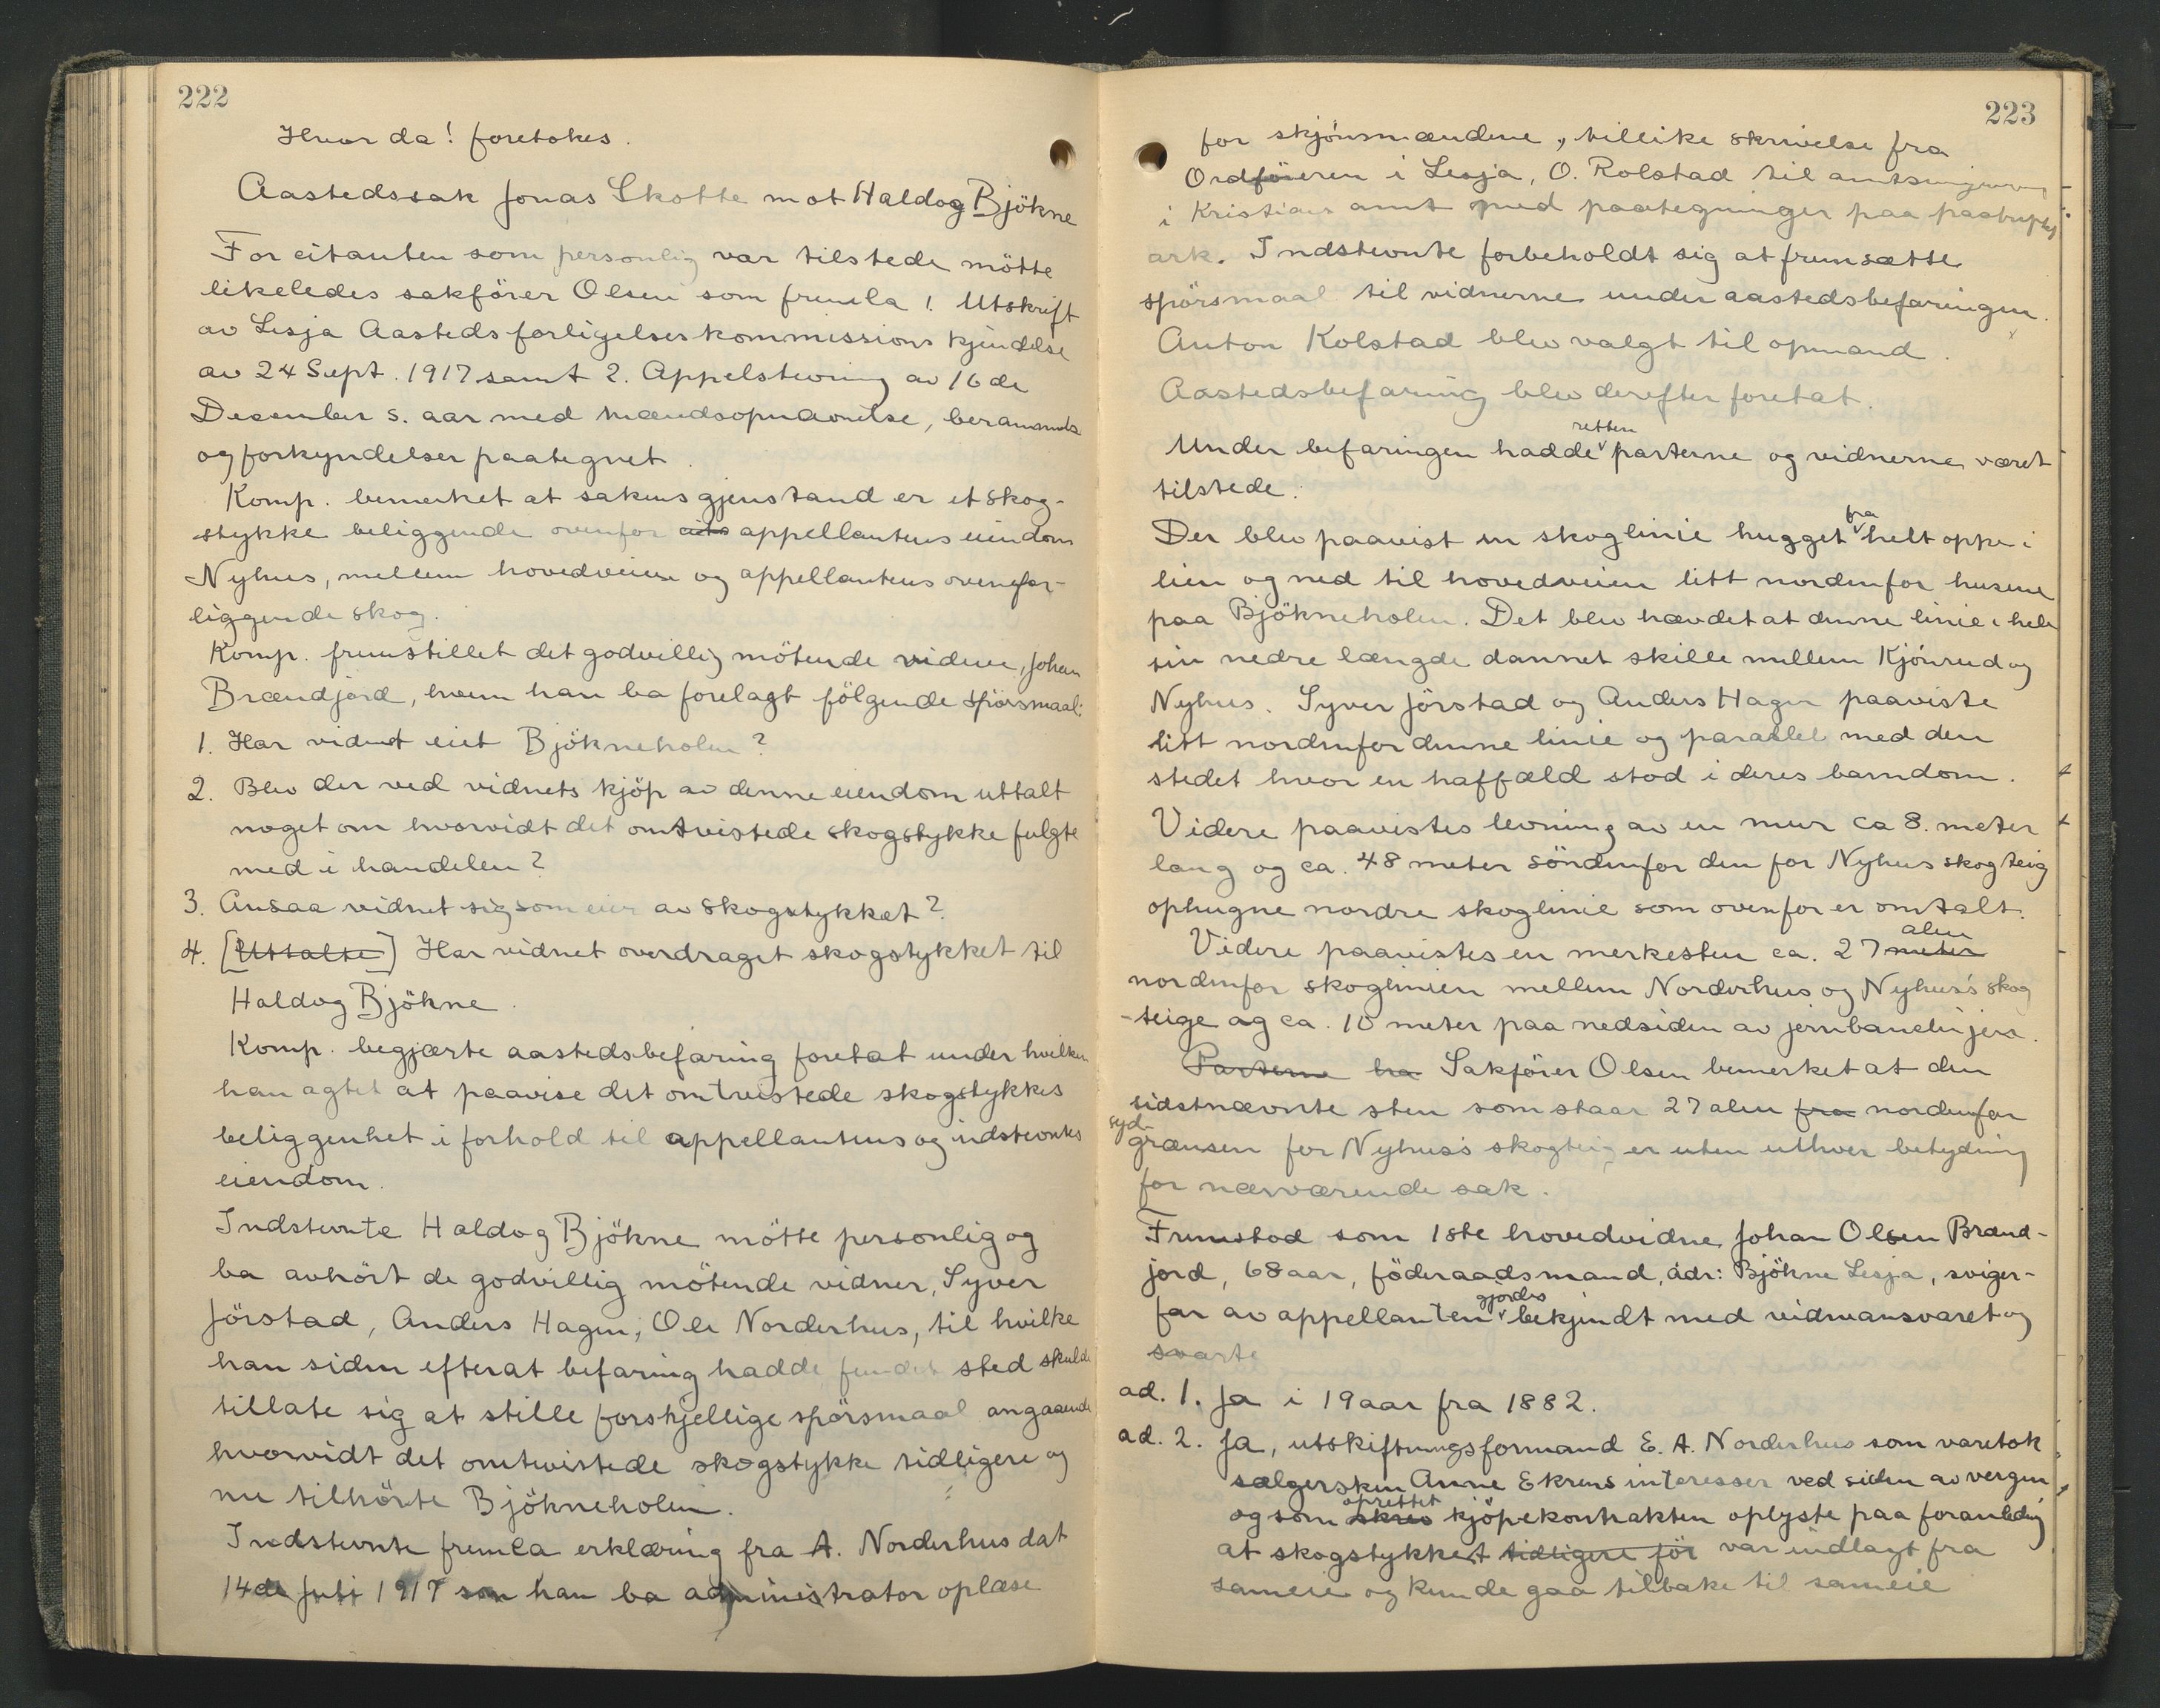 222
Hvor da! foretokes.
Aastedssak Jonas Skotte mot Haldog Bjökne
For citanten som personlig var tilstede mötte
likeledes sakförer Olsen som fremla 1. Utskrift
av Lesja Aasteds forligelseskommissions kjendelse
av 24 Sept. 1917 samt 2. Appelstevning av 16 de
December s. aar med mændsopnævnelse, berammelse
og forkyndelser paategnet.
Komp. bemerket at sakens gjenstand er et skog-
stykke beliggende ovenfor cita appellantens eiendom
Nyhus, mellem hovedveien og appellantens ovenfor-
liggende skog.
Komp. fremstillet det godvillig mötende vidne, Johan
Brændjord, hvem han ba forelagt fölgende spörsmaal:
1. Har vidnet eiet Bjökneholen?
2. Blev der ved vidnets kjöp av denne eiendom uttalt
noget om hvorvidt det omtvistede skogstykke fulgte
med i handelen?
3. Ansaa vidnet sig som eier av skogstykket?
4. [Uttalte] Har vidnet overdraget skogstykket til
Haldog Bjökne.
Komp. begjærte aastedsbefaring foretat under hvilken
han agtet at paavise det omtvistede skogstykkes
beliggenhet i forhold til appellantens og indstevntes
eiendom.
Indstevnte Haldog Bjökne mötte personlig og
ba avhört de godvillig mötende vidner, Syver
Jörstad, Anders Hagen, Ole Norderhus, til hvilke
han siden efterat befaring hadde fundet sted skulde
tillate sig at stille forskjellige spörsmaal angaaende
hvorvidt det omtvistede skogstykke tidligere og
nu tilhörte Bjökneholen.
Indstevnte fremla erklæring fra A. Norderhus dat
14de Juli 1917 som han ba administrator oplæse
223
for skjönsmændene, tillike skrivelse fra
Ordföreren i Lesja, O. Rolstad til
i Kristians amt med paategninger paa
ark. Indstevnte forbeholdt sig at fremsætte
spörsmaal til vidnerne under aastedsbefaringen.
Anton Kolstad blev valgt til opmand.
Aastedsbefaring blev derefter foretat.
Under befaringen hadde retten parterne og vidnerne været
tilstede.
Der blev paavist en skoglinie hugget fra helt oppe i
lien og ned til hovedveien litt nordenfor husene
paa Bjökneholen. Det blev hævdet at denne linie i hele
sin nedre længde dannet skille mellem Kjönrud og
Nyhus. Syver Jörstad og Anders Hagen paaviste
litt nordenfor denne linie og parallel med den
stedet hvor en haffæld stod i deres barndom.
Videre paavistes levning av en mur ca 8. meter
lang og ca. 48 meter söndenfor den for Nyhus skogteig
ophugne nordre skoglinie som ovenfor er omtalt.
Videre paavistes en merkesten ca. 27 meter alen
nordenfor skoglinien mellem Norderhus og Nyhus's skog
-teige og ca. 10 meter paa nedsiden av jernbanelinjen.
Parterne ba Sakförer Olsen bemerket at den
sidstnævnte sten som staar 27 alen fra nordenfor
syd-grænsen for Nyhus's skogteig er uten uthver betydning
for nærværende sak.
Fremstod som 1ste hovedvidne Johan Olsen Brænd-
jord, 68 aar, föderaadsmand, adr: Bjökne Lesja, sviger-
far av appellanten gjordes bekjendt med vidneansvaret og
svarte
ad. 1. Ja i 19 aar fra 1882.
ad. 2. Ja, utskiftningsformand E. A. Norderhus som varetok
sælgersken Anne Ekrens interesser ved siden av vergen
og som skrev oprettet kjöpekontrakten oplyste paa foranledig
at skogstykket tidligere för var indlagt fra
sameie og kunde gaa tilbake til sameie